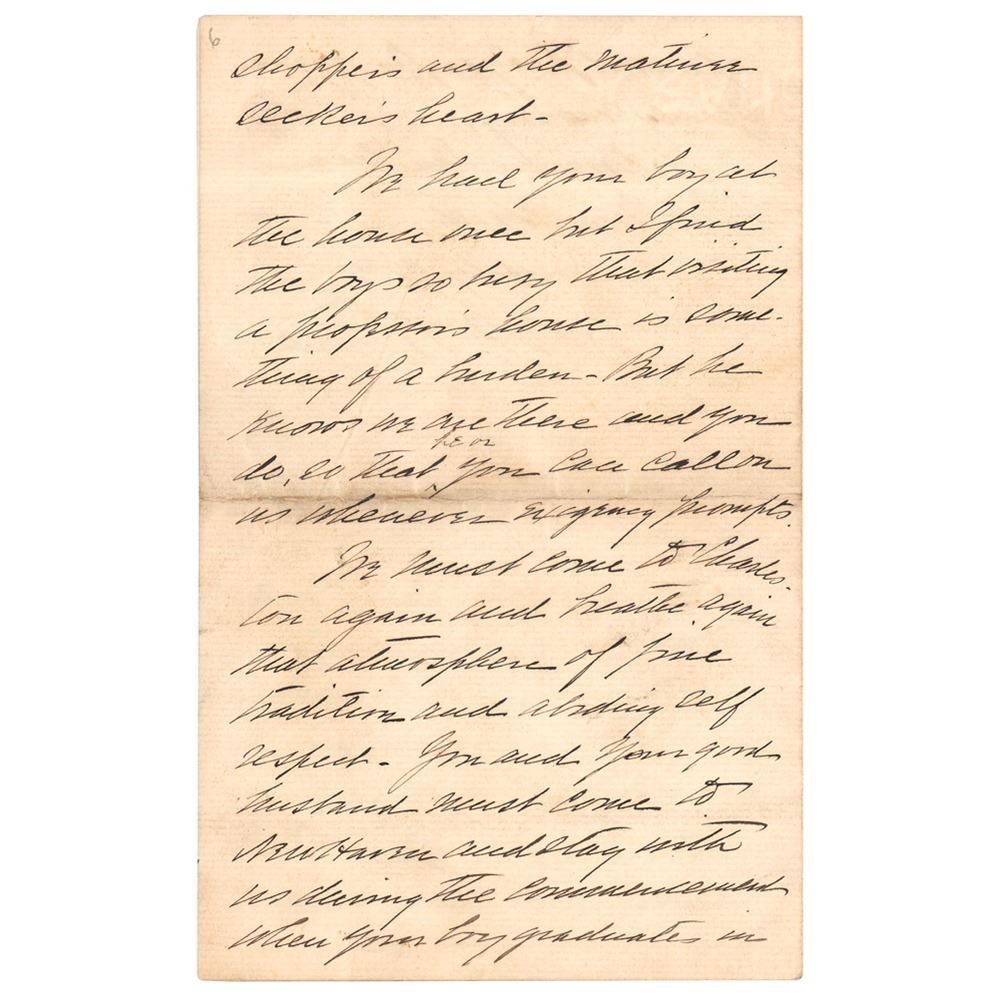 6
shoppers and the matinee
seekers heart -
We had your boy at
the house once but I find
the boys so busy that visiting
a professor's house is some-
thing of a burden - But he
knows we are there and you
do, so that he or you can call on
us whenever exigency prompts.
We must come to Charles-
ton again and breathe again
that atmosphere of fine
tradition and abiding self
respect - You and your good
husband must come to
New Haven and stay with
us during the commencement
when your boy graduates in